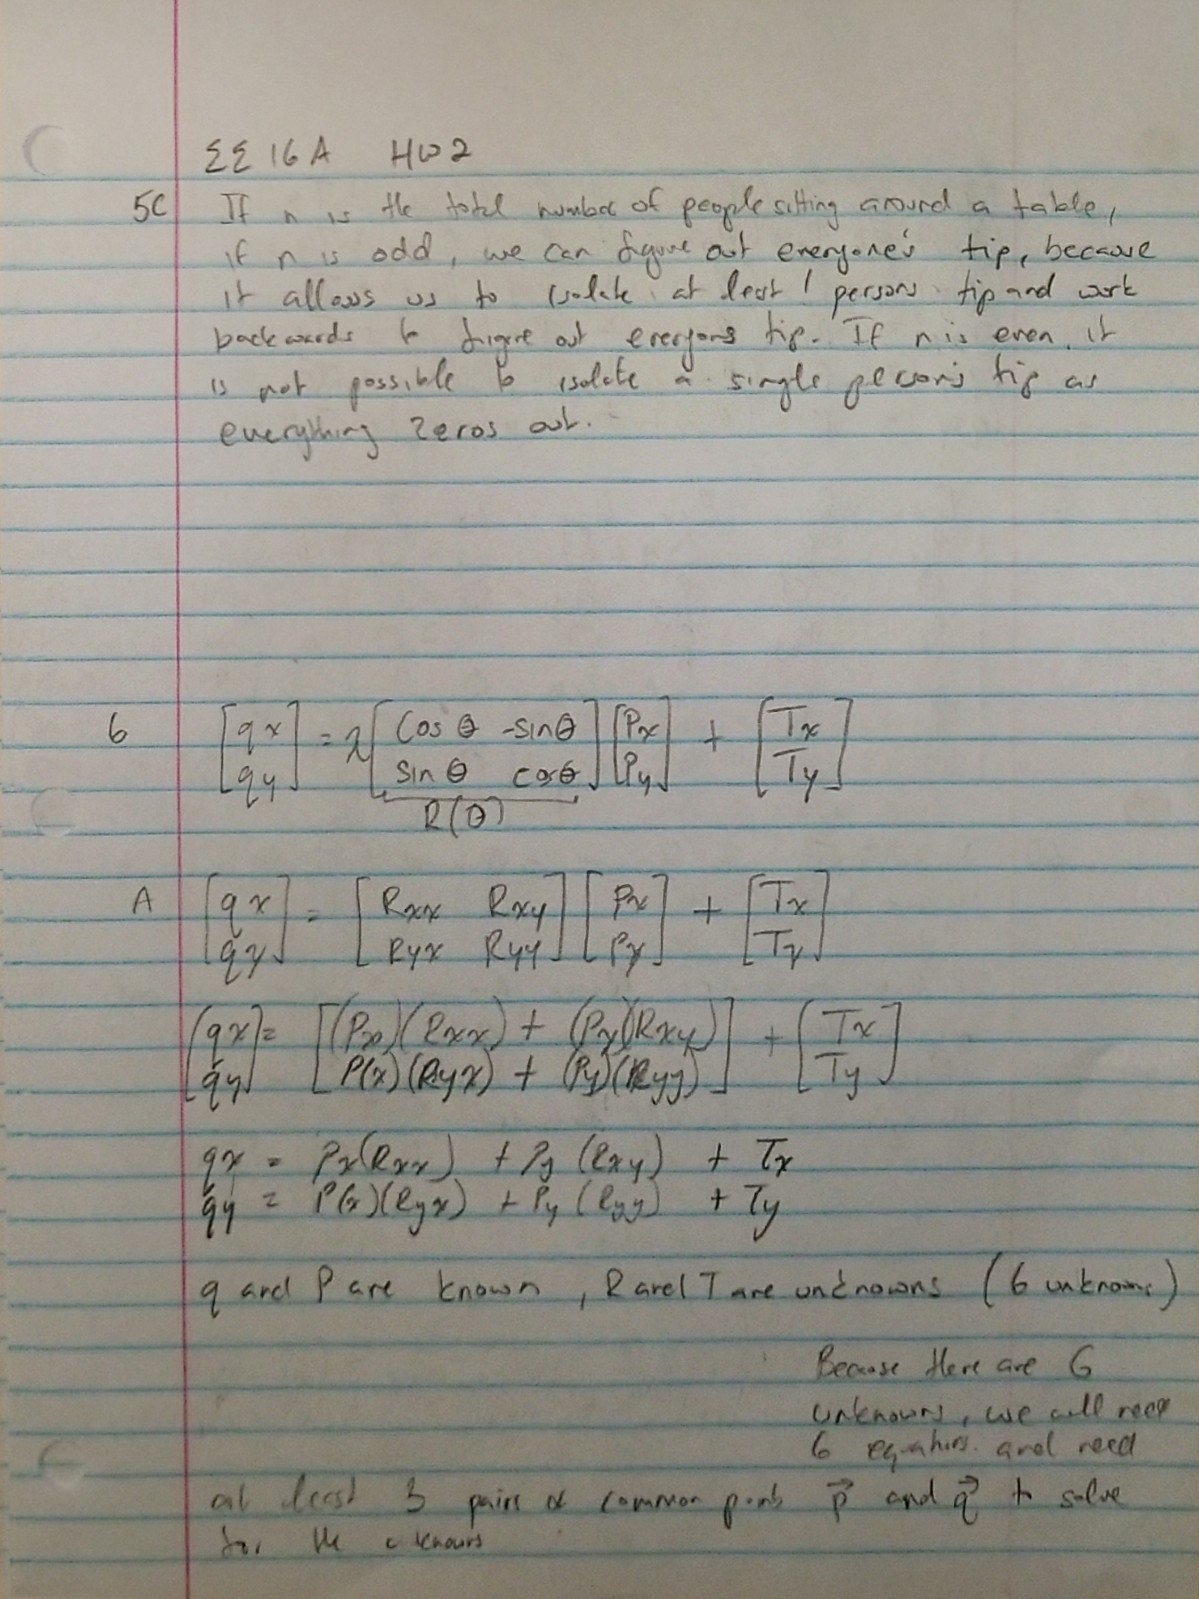 EE 16A HW2
5C If n is the total number of people sitting around a table,
if n is odd, we can figure out everyone's tip, because
it allows us to isolate at least 1 persons tip and work
backwards to figure out everyons tip. If n is even, it
is not possible to isolate a single person's tip as
everything zeros out.
6 [qx qy] = λ [cosθ -sinθ sinθ cosθ] [Px Py] + [Tx Ty]
R(θ)
A [qx qy] = [Rxx Rxy Ryx Ryy] [Px Py] + [Tx Ty]
[qx qy] = [(Px)(Rxx) + (Py)(Rxy) P(x)(Ryx) + (Py)(Ryy)] + [Tx Ty]
qx = Px(Rxx) + Py(Rxy) + Tx
qy = P(x)(Ryx) + Py(Ryy) + Ty
q and P are known, R and T are unknowns (6 unknowns)
Because there are 6
unknowns, we will need
6 equations and need
at least 3 pairs of common points p⃗ and q⃗ to solve
for the unknowns